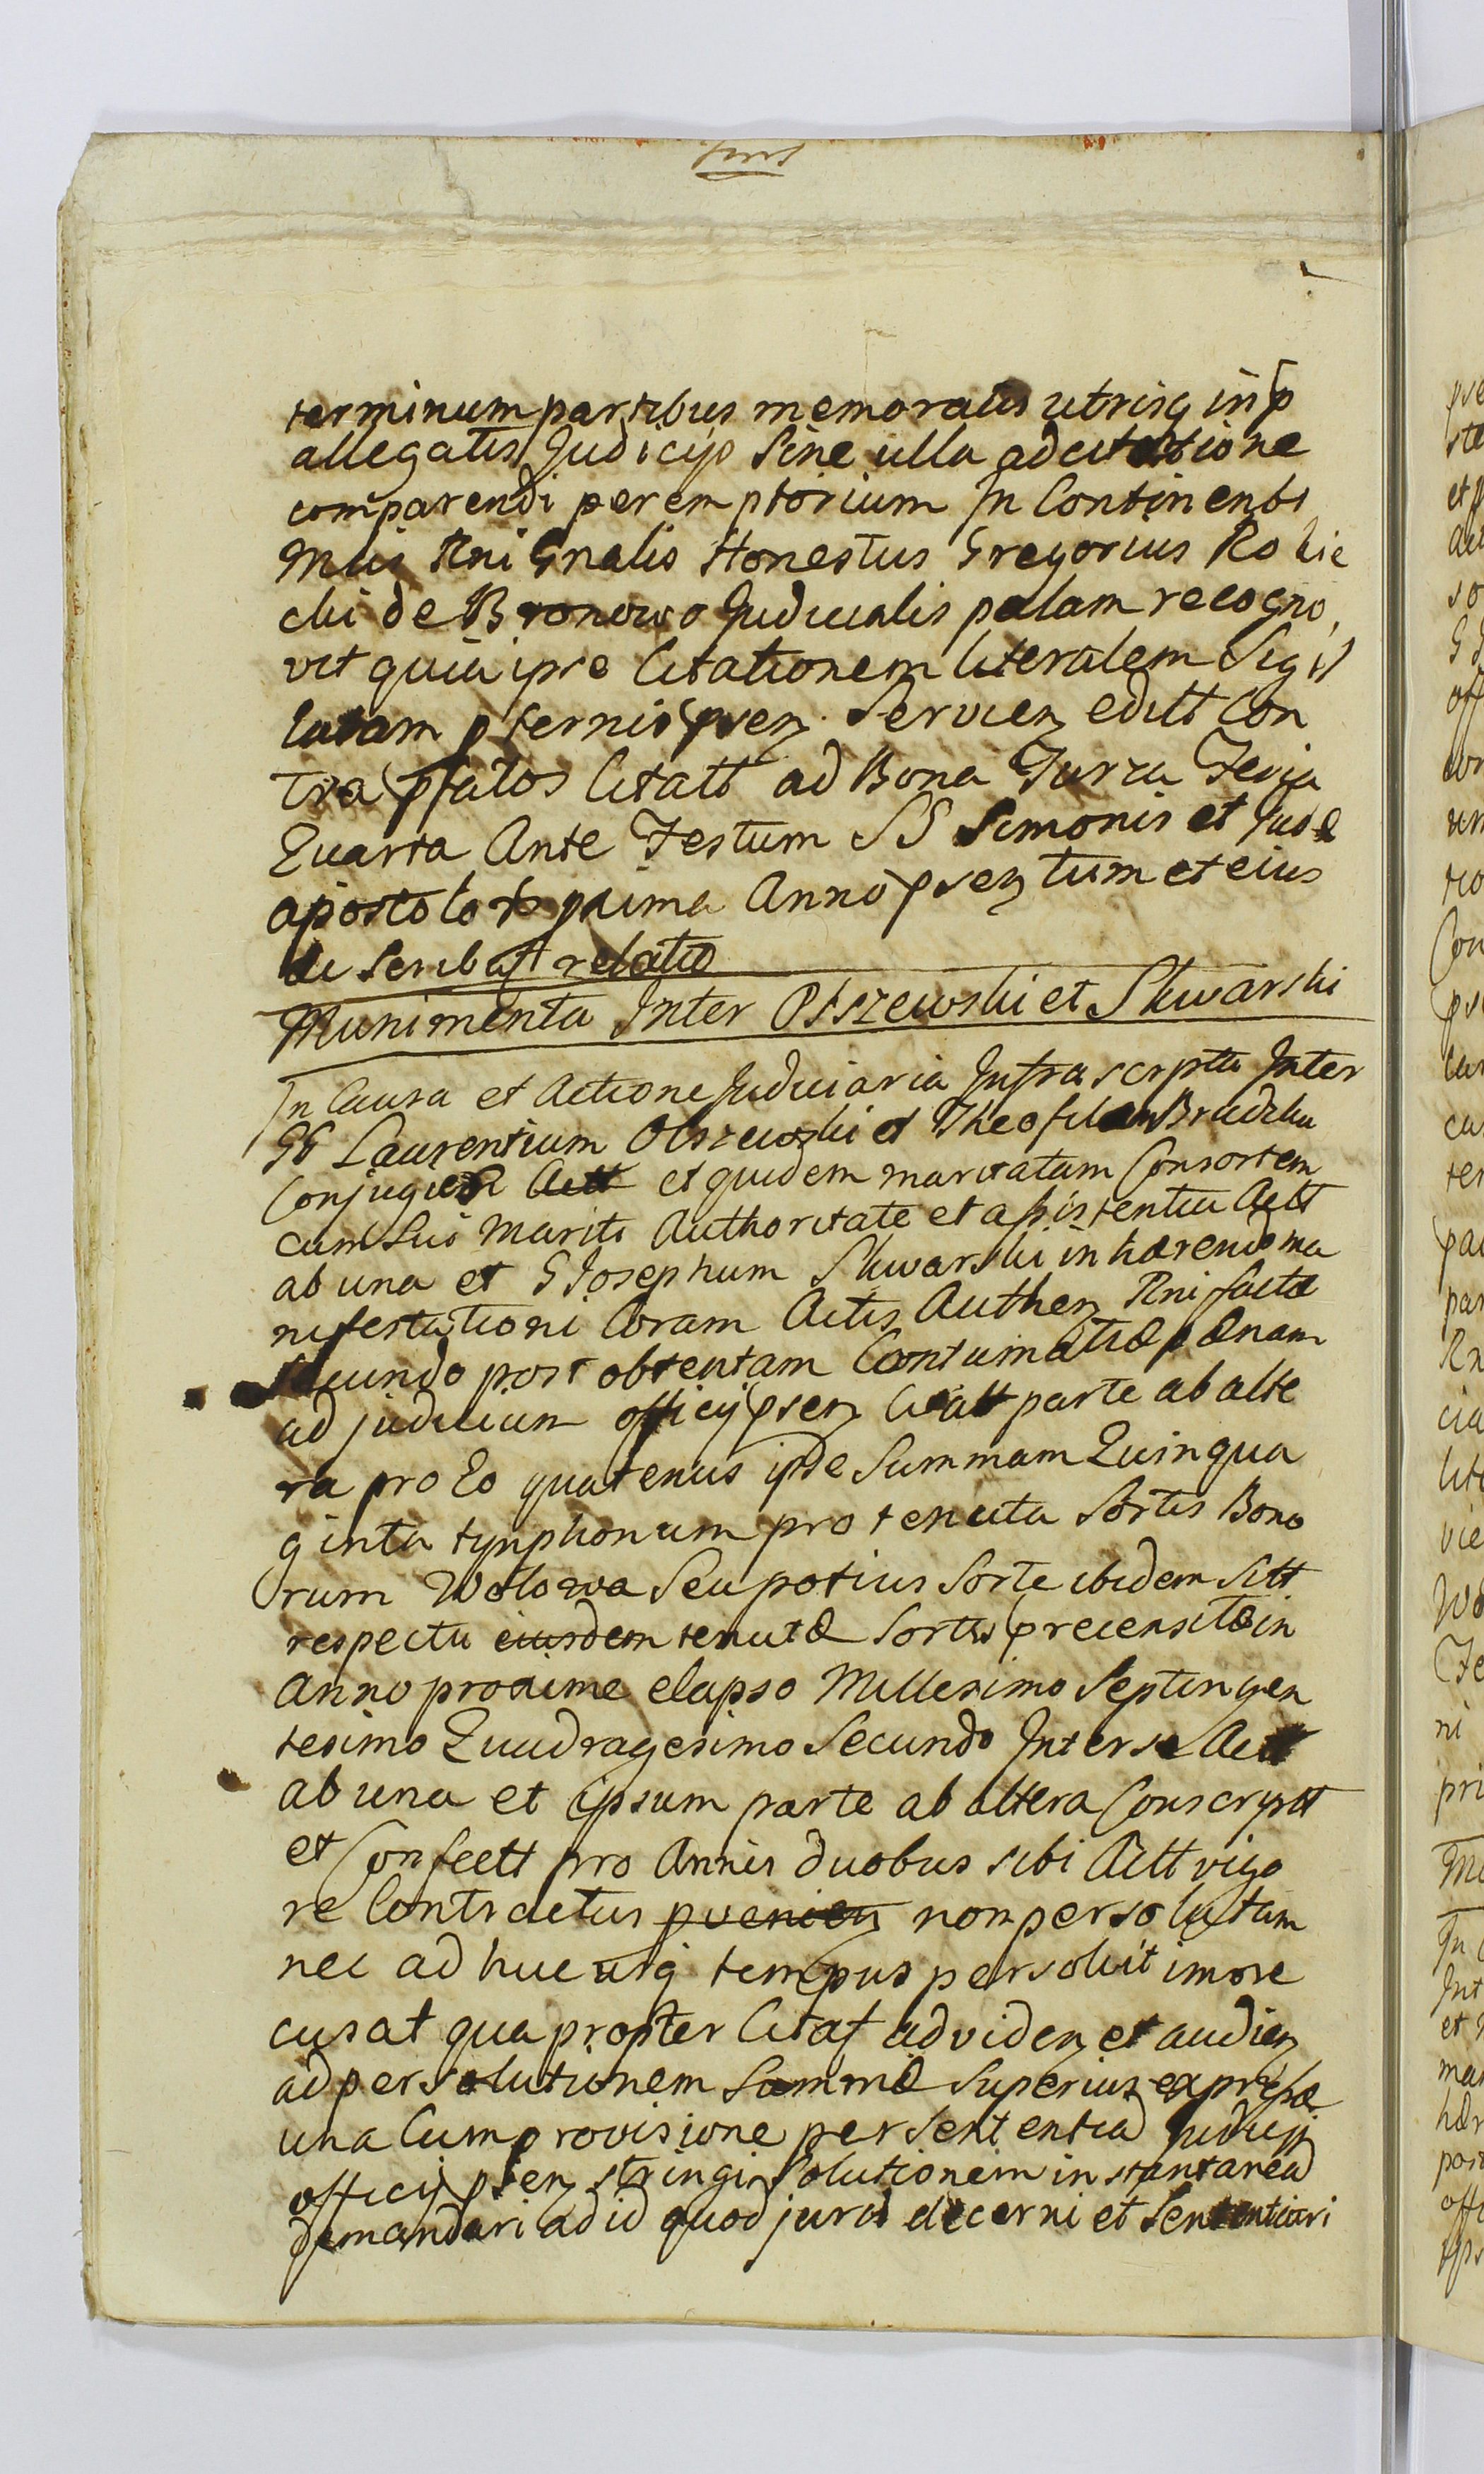 terminum partibus memoratis utrisq in p
allegatis Judicijs Sine ulla adcitatione
comparendi peremptorium In Continenti
Mnis Rni Gnalis Honestus Gregorius Rokic
cki de Bronowo Judicialis palam recogno
vit quia ipse Citationem literalem Sigil
latam p ternis psen Servien editt Con
tra pfatos Citatt ad Bona Turza Feria
Quarta Ante Festum SS Simonis et Judæ
apostolor proxima Anno psentum et eius
de Scribat relatio
Munimenta Inter Olszewski et Skwarski
In Causa et Actione Judiciaria Infra scrypta Inter
GG Laurentium Olszewski et Theofilam Brudzka
Conjuges Actt et quidem maritatam Consortem
cum Sui Mariti Authoritate et assistentia Actt
ab una et G Josephum Skwarski inhærendo ma
nifestationi Coram Actis Authen Rni factæ
Secundo post obtentam Contumatiæ pænam
ad judicium officij psen Citatt parte ab alte
ra pro Eo quatenus ipse Summam Quinqua
ginta tynphonum pro tenuta Sortis Bono
rum Wolowa Seu potius Sorte ibidem Sitt
respectu eiusdem tenutæ Sortis precensitæ in
Anno proxime elapso Millesimo Septingen
tesimo Quadragesimo Secundo Inter se Actt
ab una et ipsum parte ab altera Conscryptt
et Confectt pro Annis duobus sibi Actt vigo
re Contractus pvenien non persolutam
nec ad huc usq tempus persolvit imo re
cusat qua propter Citat ad viden et audien
ad persolutionem Summæ Superius expressæ
una Cum provisione per Sententia Judicij
officij psen stringi Solutionem instantanea
demandari ad id quod juris decerni et Sententiari